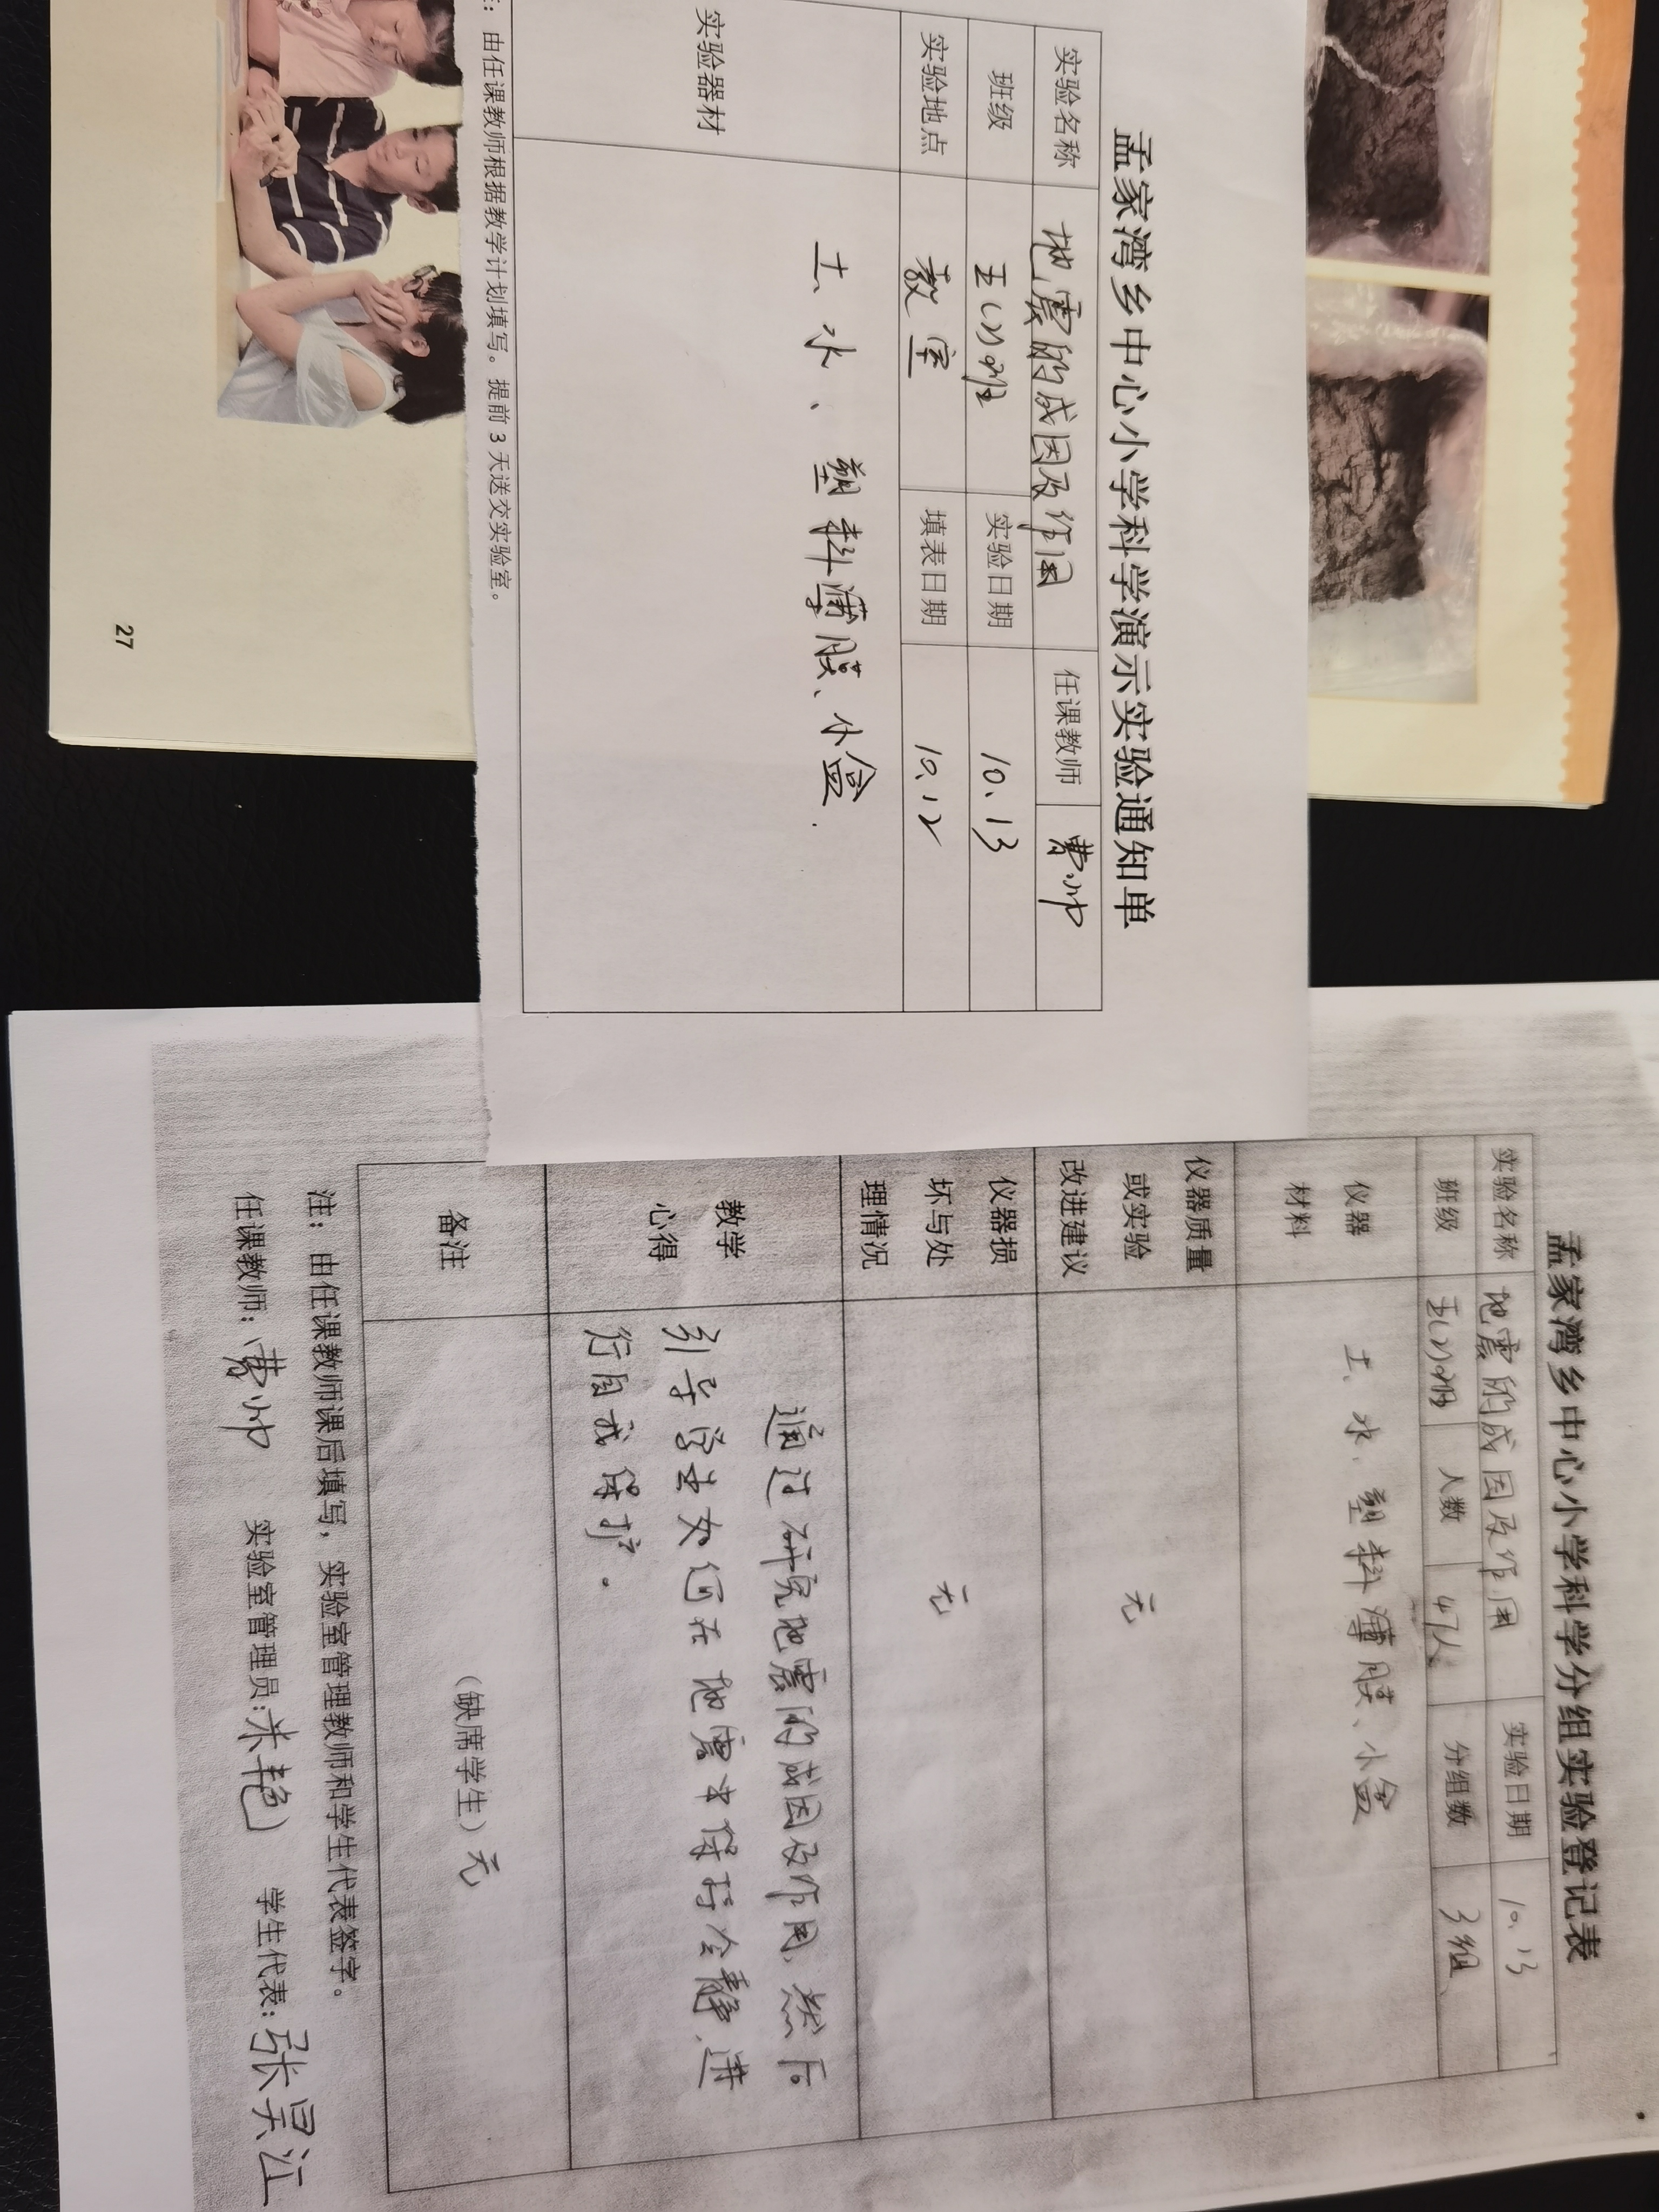 孟家湾乡中心小学科学演示实验通知单
实验名称 地震的成因及作用 任课教师 费帅
班级 五(2)班 实验日期 10.13
实验地点 教室 填表日期 10.12
实验器材 土、水、塑料薄膜、小盒.
:由任课教师根据教学计划填写。提前3天送交实验室。
27
孟家湾乡中心小学科学分组实验登记表
实验名称 地震的成因及作用 实验日期 10.13
班级 五(2)班 人数 47人 分组数 3组
仪器
材料
土、水、塑料薄膜、小盒
仪器质量
或实验
改进建议
无
仪器损
坏与处
理情况
无
教学
心得
通过研究地震的成因及作用,然后
引导学生如何在地震中保持冷静,进
行自我保护.
备注 (缺席学生) 无
注:由任课教师课后填写,实验室管理教师和学生代表签字。
任课教师:费帅 实验室管理员:米艳 学生代表:张昊江